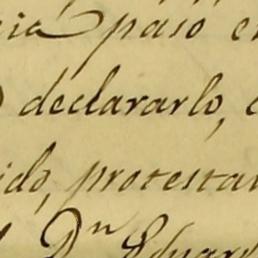 cia pasó en
declararlo, e
ido, protestan
l Dn Eduard